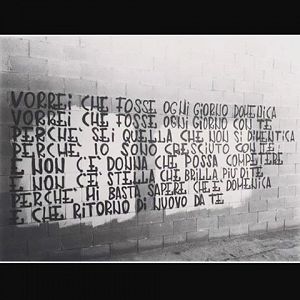 VORREI CHE FOSSE OGNI GIORNO DOMENICA
VORREI CHE FOSSE OGNI GIORNO CON TE
PERCHE' SEI QUELLA CHE NON SI DIMENTICA
PERCHE' IO SONO CRESCIUTO CON TE
E NON C'È DONNA CHE POSSA COMPETERE
E NON C'È STELLA CHE BRILLA PIU DI TE
PERCHE' MI BASTA SAPERE CHE È DOMENICA
E CHE RITORNO DI NUOVO DA TE